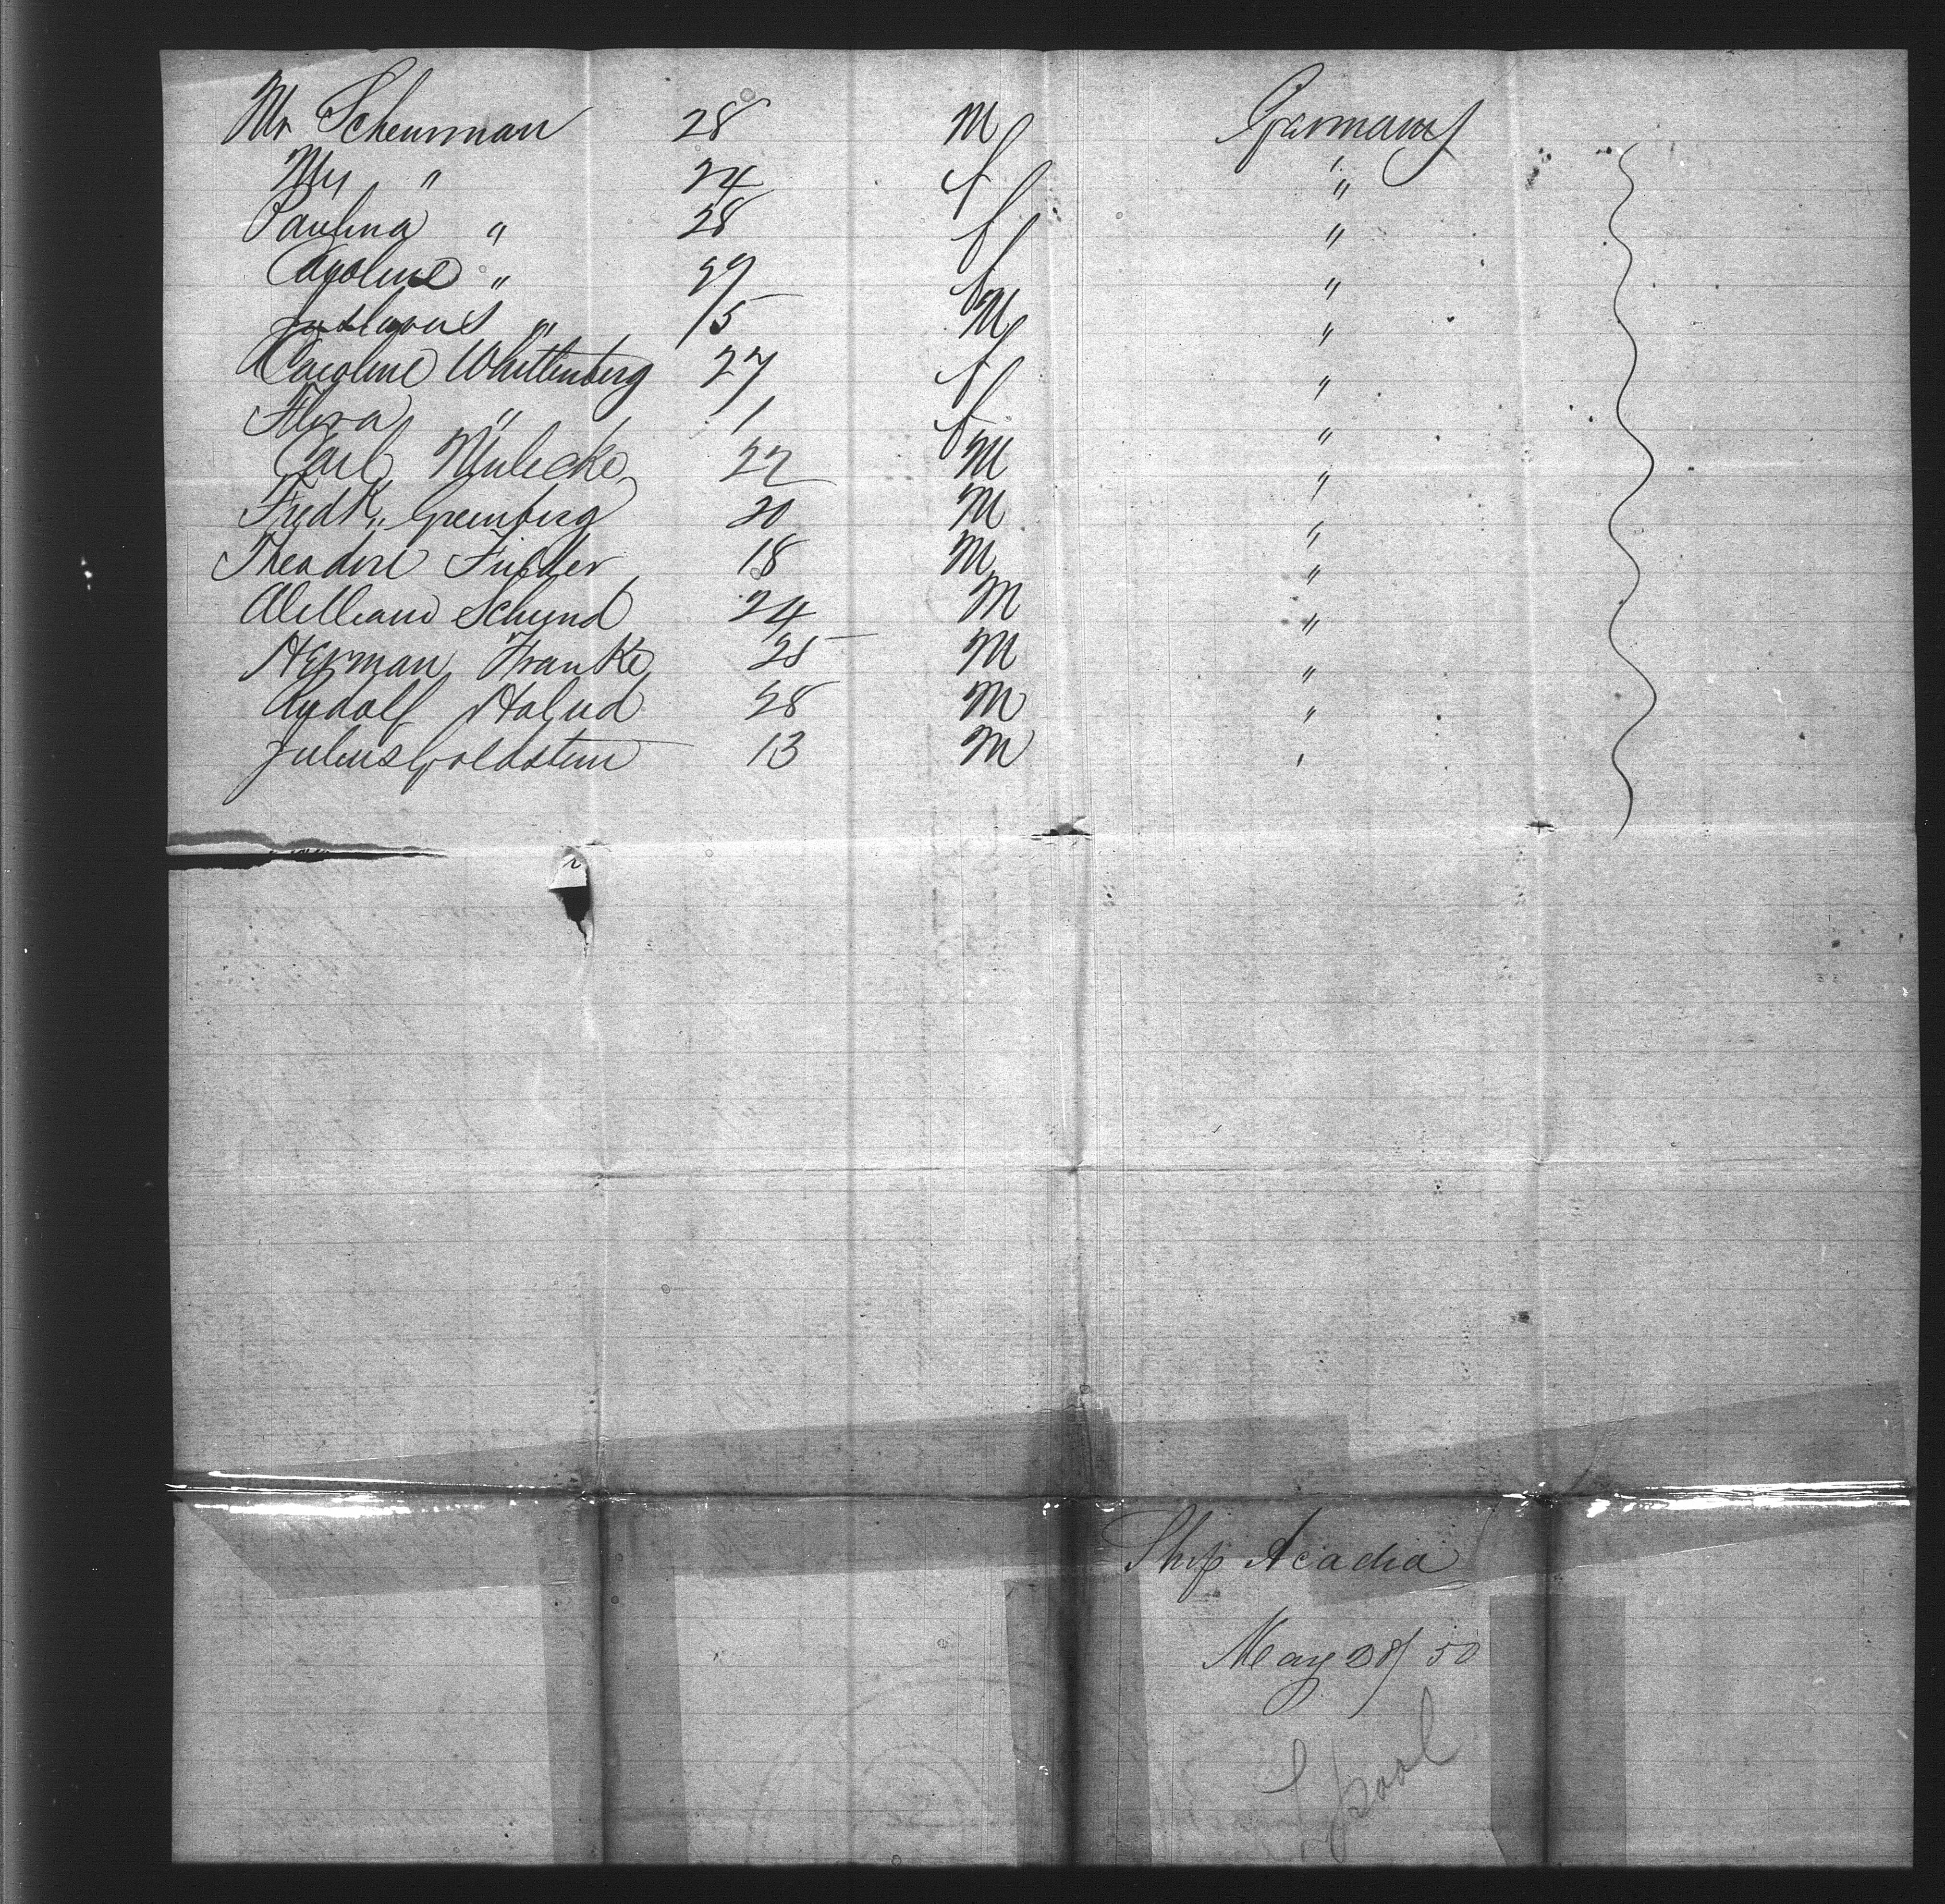 Mr Scheurman 28 M Germany
Mrs " 24 f "
Paulina " 28 f "
Caroline " 29 f "
" 15 M "
Caroline Whittenberg 27 f "
Flora " 1 f "
Carl Mulecke 22 M "
Fredk,, Greenberg 20 M "
Theodore 18 M "
William Schund 24 M "
Herman Franke 25 M "
Rudolf 28 M "
Julius Goldstein 13 M "
Ship Acadia
May 28/50
Lpool